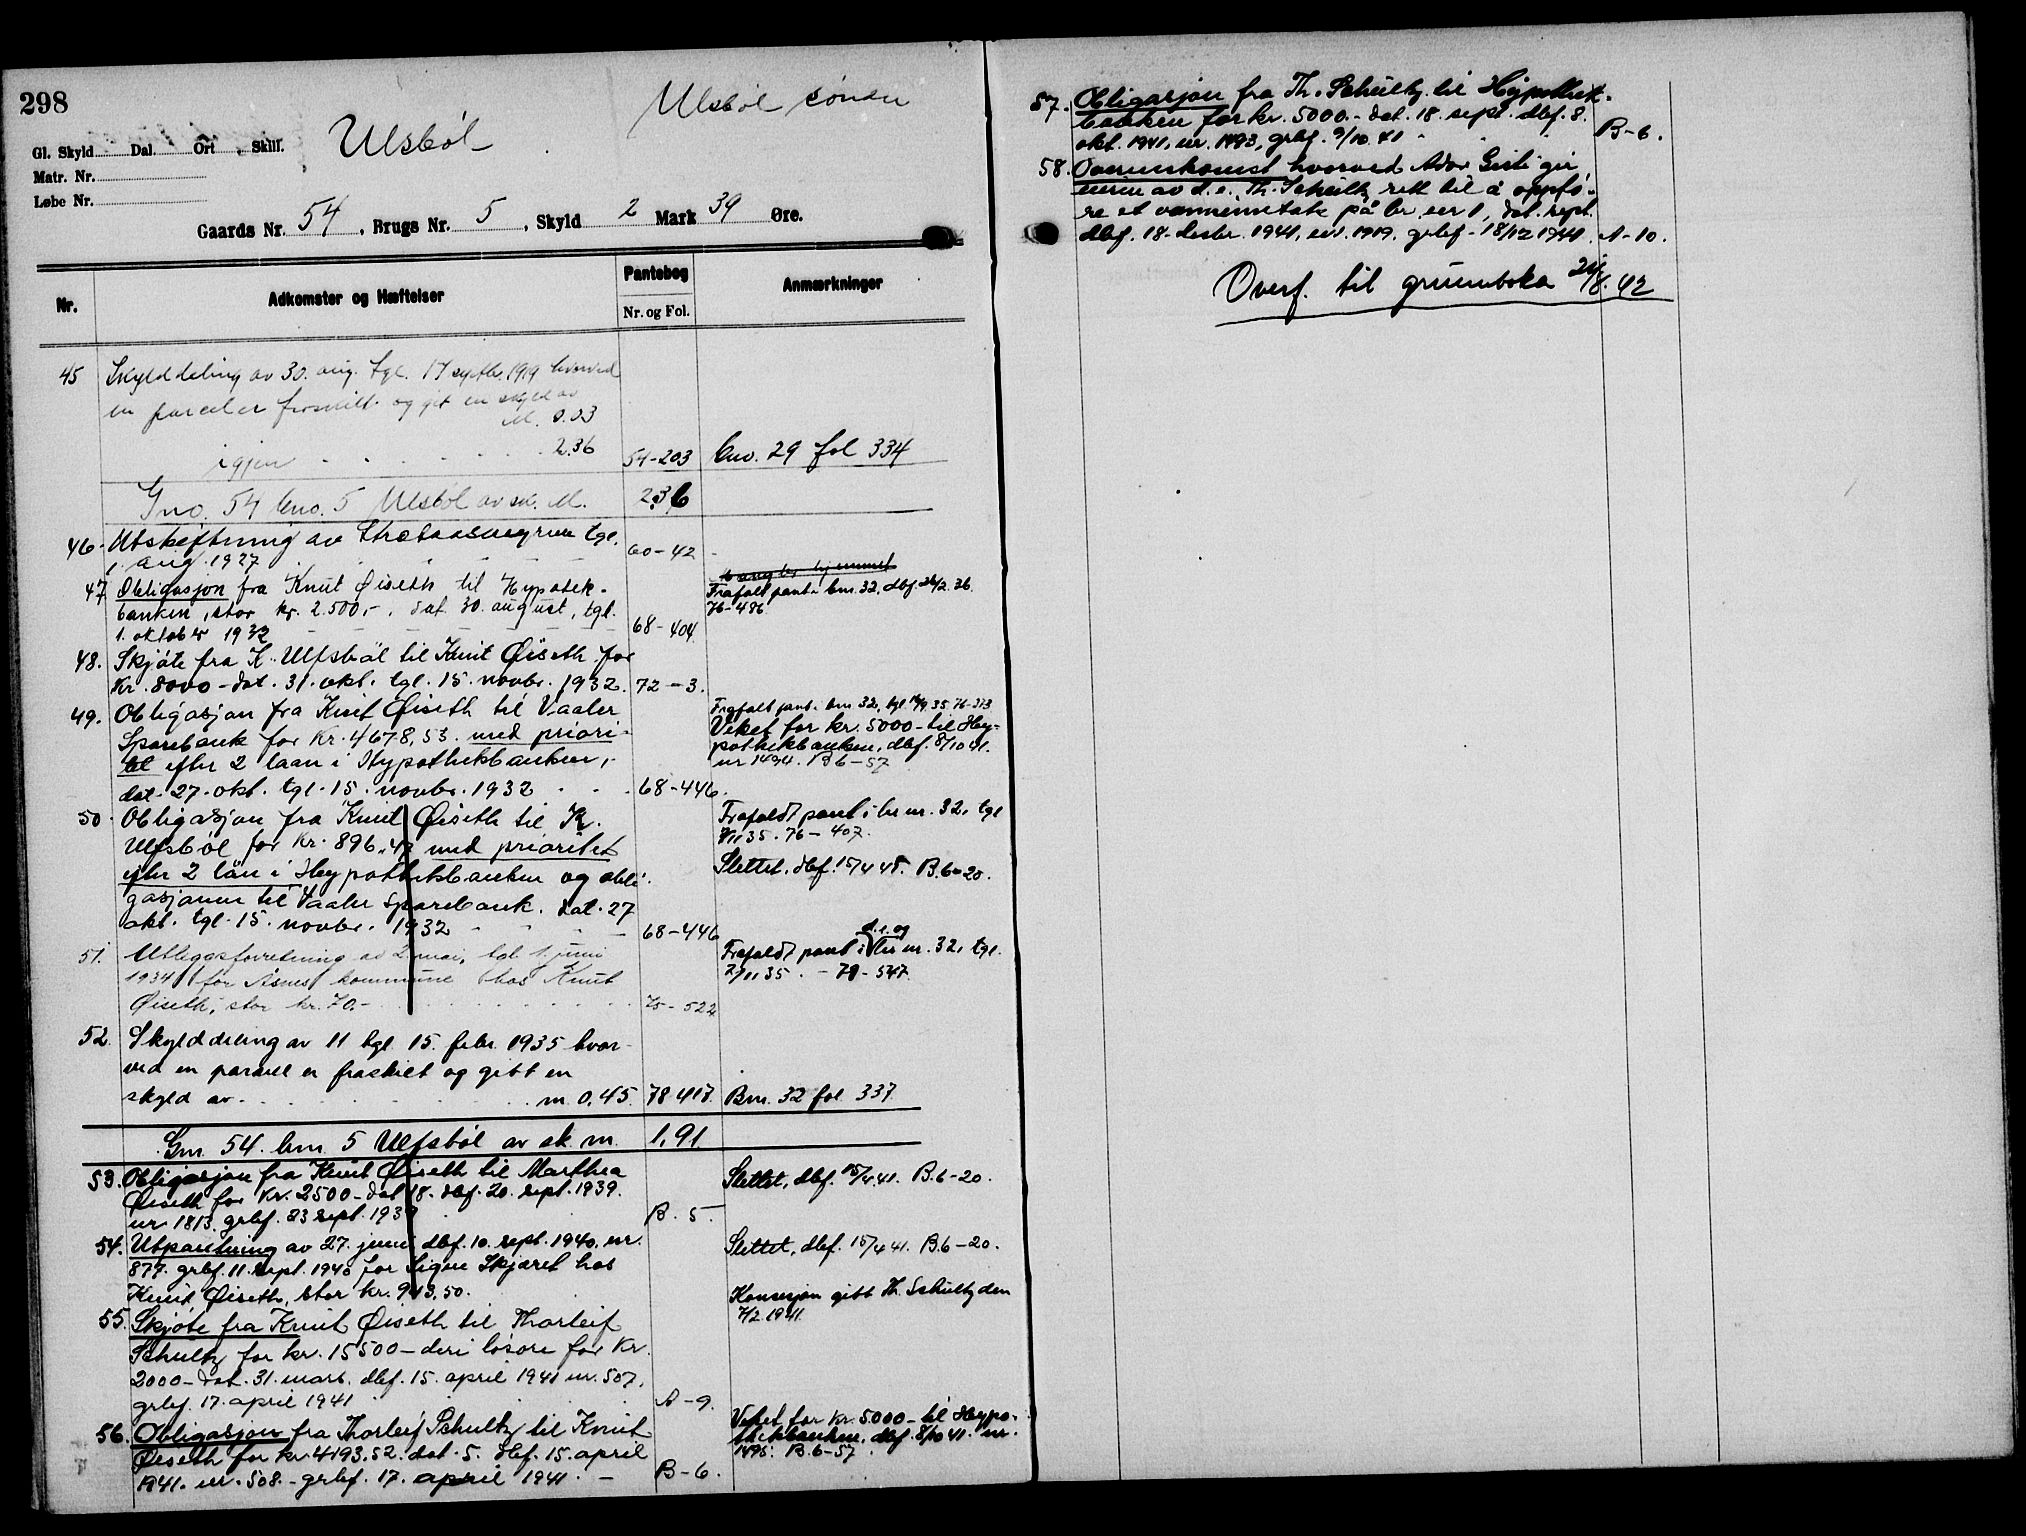 298
Ulsböl
Ulsböl söndre
Gl. Skyld Dal. Ort , Skill.
Matr. Nr.
Løbe Nr.
Gaards Nr. 54 , Brugs Nr. 5 , Skyld 2 Mark 39 Øre.
Nr.
Adkomster og Hæftelser
Pantebog
Nr. og Fol.
Anmærkninger
45 Skylddeling av 30. aug. tgl. 17 septbr. 1919 hvorved
en parcel er fraskilt og git en skyld av
M. 0.03
igjen 2.36 54-203 bno. 29 fol 334
Gno. 54 bno. 5 Ulsböl av sk. M. 2.36
46. Utskiftning av tgl.
1. aug. 1927 60-42
47. Obligasjon fra Knut Øiseth til Hypotek-
banken, stor kr. 2.500,-, dat. 30. august, tgl.
1. oktober 1932 68-404.
Frafalt pant i bnr. 32, dbf. 26/2. 36.
76-486
48. Skjöte fra K. Ulfsböl til Knut Öiseth for
Kr. 8000- dat. 31. okt. tgl. 15. novbr. 1932. 72-3.
49. Obligasjon fra Knut Öiseth til Vaaler
Sparebank for Kr. 4678,53. med priori-
tet efter 2 laan i Hypothekbanken,
dat. 27. okt. tgl. 15. novbr. 1932 68-446.
Frafalt pant i bnr 32, tgl. 35. 76-373
Veket for kr. 5000- til Hy-
pothekbanken, dbf. 8/10 41.
nr 1494. B6-57
50. Obligasjon fra Knut Öiseth til K.
Ulfsböl for Kr. 896,47 med prioritet
efter 2 lån i Hypothekbanken og obli-
gasjonen til Vaaler Sparebank. dat. 27
okt. tgl. 15. novbr. 1932 68-446
Frafaldt pant i br nr. 32, tgl
35. 76-407.
Slettet. dbf. 15/4 41. B.6-20.
51. Utleggsforretning av 2. mai, tgl. 1. juni
1934 for Åsnes kommune hos Knut
Öiseth, stor kr. 70.- 75-522
d.e. og
Frafaldt pant i br nr. 32, tgl.
2/11 35. - 79-547
52. Skylddeling av 11 tgl 15. febr. 1935 hvor-
ved en parsell er fraskilt og gitt en
skyld av m. 0,45. 78-417. Bnr. 32 fol 337
Gnr. 54 bnr 5 Ulfsböl av sk. m. 1,91
53. Obligasjon fra Knut Öiseth til Marthea
Öiseth for Kr. 2500- dat 18. dbf. 20. sept. 1939.
nr. 1813. grbf. 23 sept. 1939 B. 5.
Slettet, dbf. 15/4.41. B.6-20.
54. Utpantning av 27. juni dbf. 10. sept. 1940. nr.
877. grbf. 11. sept. 1940 for Skjæret hos
Knut Öiseth, stor kr. 913.50.
Slettet, dbf. 15/4 41. B.6-20.
55. Skjöte fra Knut Öiseth til Thorleif
Schultz for kr. 15500- deri lösöre for Kr.
2000- dat. 31. mars. dbf. 15. april 1941 nr. 507,
grbf. 17. april 1941 A-9.
Konsesjon gitt Th. Schultz den
7/2 1941.
56. Obligasjon fra Thorleif Schultz til Knut
Öiseth for kr. 4193.52. dat. 5. dbf. 15. april
1941. nr. 508.- grbf. 17. april 1941. - B-6.
Veket for kr. 5000- til Hypo-
thekbanken, dbf. 8/10 41. nr.
1495. B.6-57.
57. Obligasjon fra Th. Schultz til Hypothek-
banken for kr. 5000.- dat. 18. sept. dbf. 8.
okt. 1941. nr. 1493, grbf. 9/10 41 B-6.
58. Overenskomst hvorved gir
eieren av d.e. Th. Schultz rett til å oppfö-
re et på br. nr 1, dat. sept.
dbf. 18. desbr. 1941, nr. 1919. grbf. 18/12 1941. A-10.
Overf. til grunnboka 42